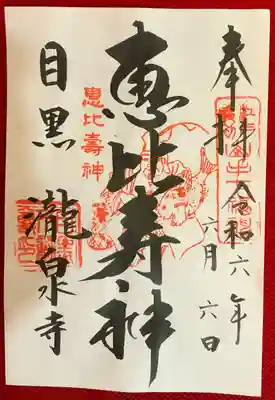 奉拝
令和六年
六月六日
恵比寿神
恵比壽神
目黒
瀧泉寺